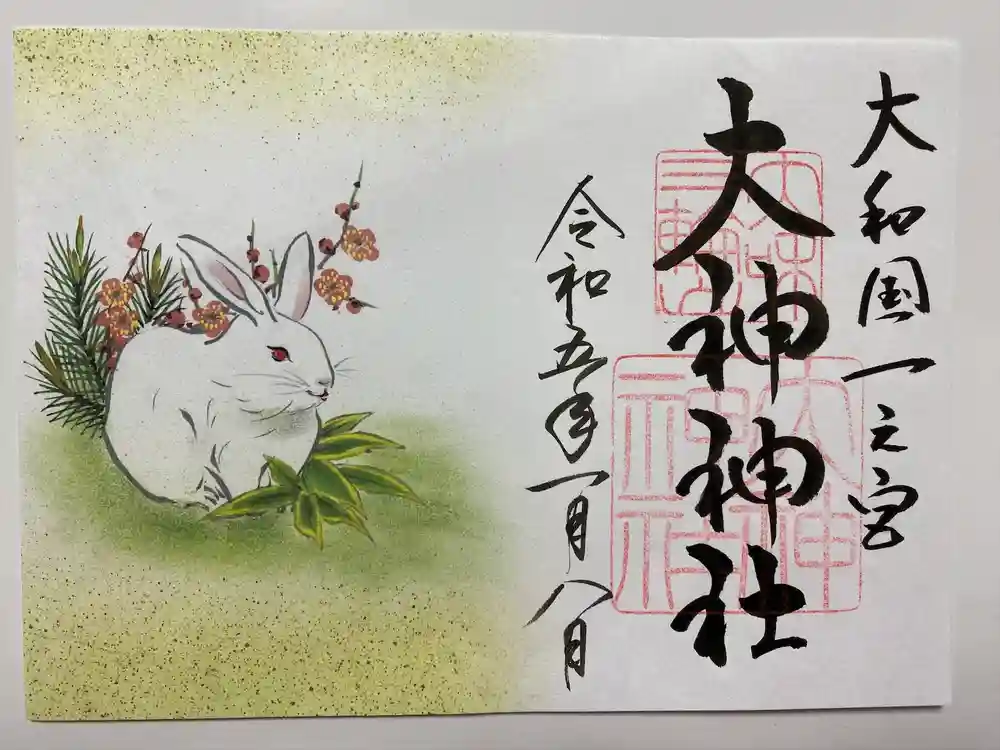 大和国一之宮
大神神社
令和五年一月八日
大神
神社